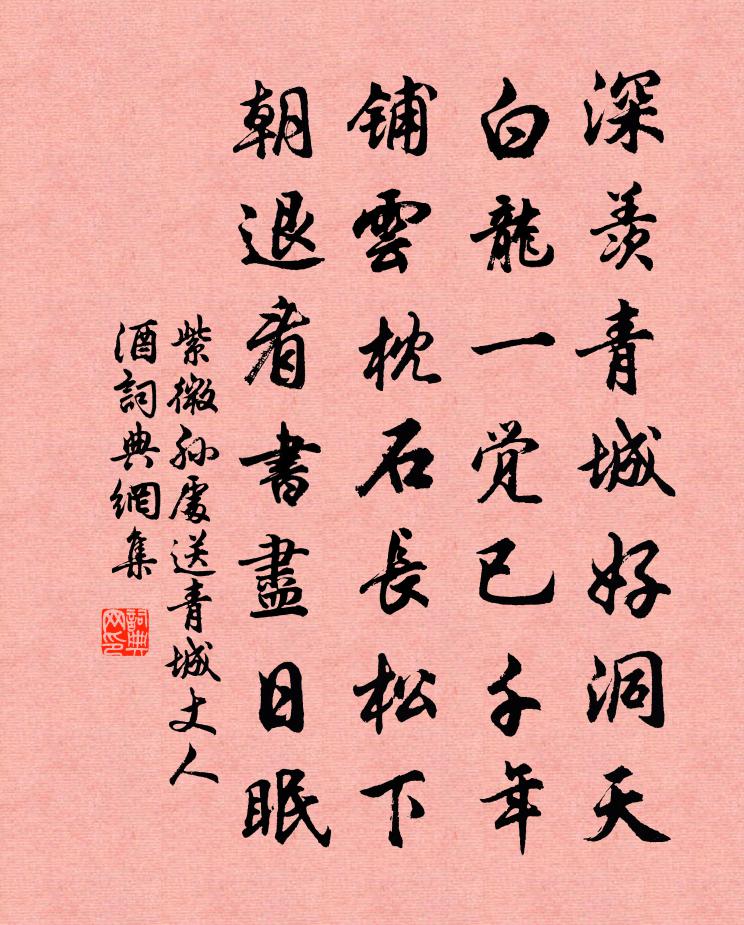 深羨青城好洞天
白龍一覺已千年
鋪雲枕石長松下
朝退看書盡日眠
紫微孙處送青城丈人
酒詞典網集
詞典
网印